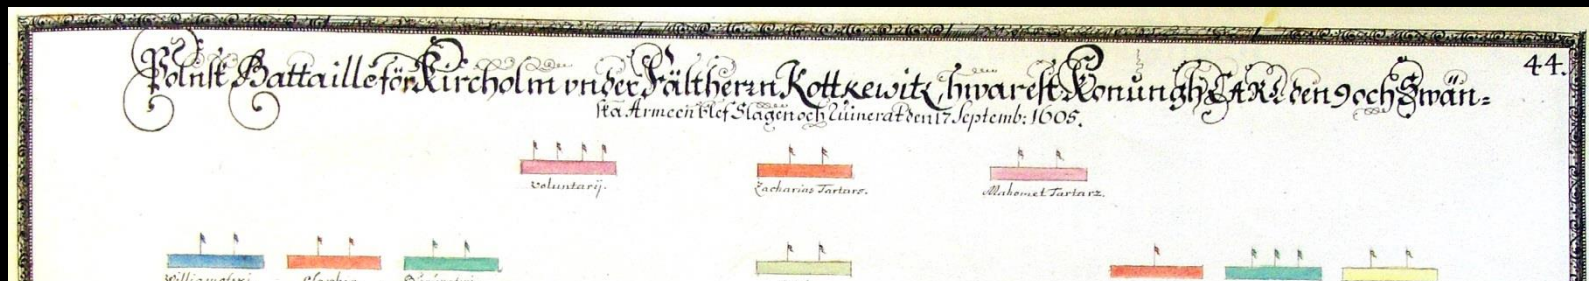 44.
Polnsk Battaille för Kircholm vnder Fältherrn Kottkewitz, hwarest Konungh CARL den 9 och Swän=
ska Armeen blef Slagen och Ruinerat den 17 Septemb: 1605.
Voluntarij.
Zacharias Tartarz.
Mahomet Tartarz.